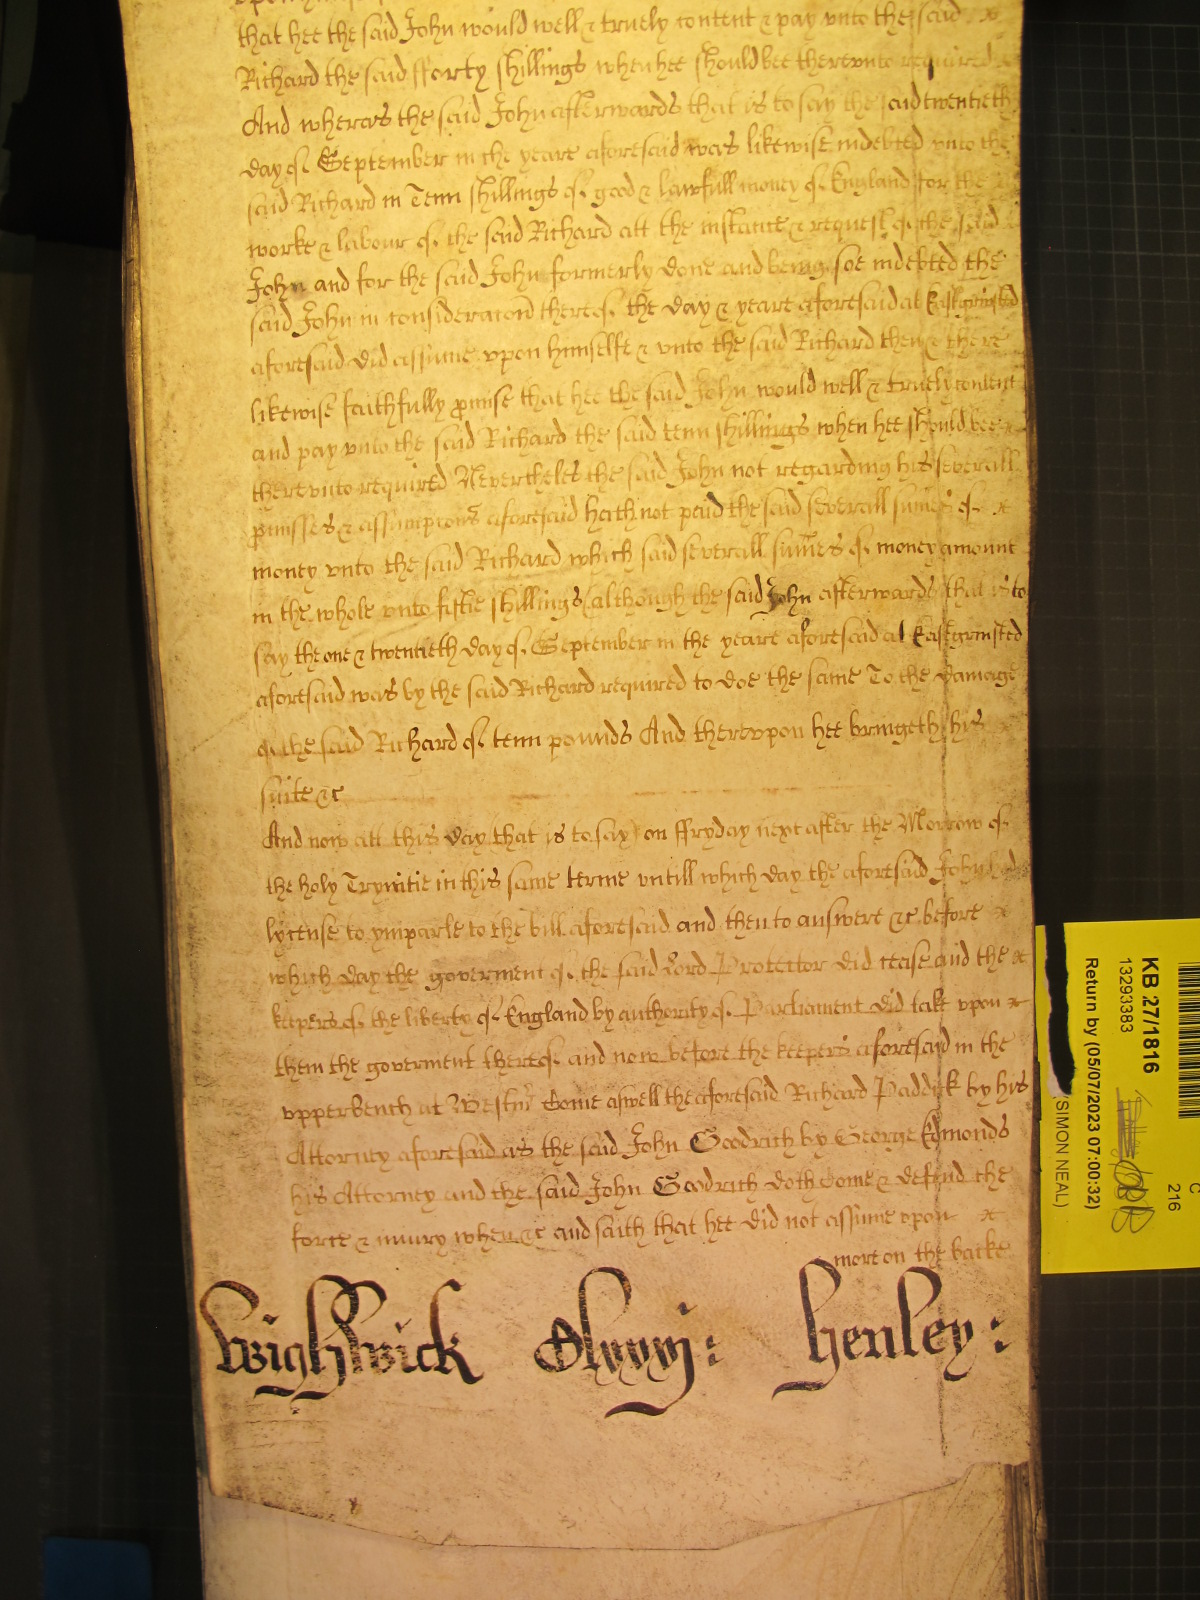 that hee the said John would well & truely content & pay vnto the said
Richard the said fforty shillings when hee should bee therevnto required
And wheras the said John afterwards that is to say the said twentieth
day of September in the yeare aforesaid was likewise indebted vnto the
said Richard in Tenn shillings of good & lawfull money of England for the
worke & labour of the said Richard att the instance & request of the said
John and for the said John formerly done and being soe indebted the
said John in consideracon thereof the day & yeare aforesaid at Eastgrinsted
aforesaid did assume vpon himselfe & vnto the said Richard then & there
likewise faithfully pmise that hee the said John would well & truely content
and pay vnto the said Richard the said tenn shillings when hee should bee
therevnto required Neverthelēs the said John not regarding his severall
pmisses & assumpcons aforesaid hath not paid the said severall sumes of
money vnto the said Richard which said severall sumes of money amount
in the whole vnto fiftie shillings (although the said John afterwards that is to
say the one & twentieth day of September in the yeare aforesaid at Eastgrinsted
aforesaid was by the said Richard required to doe the same To the damage
of the said Richard of tenn pounds And therevpon hee bringeth his
suite &c
And now att this day (that is to say) on ffryday next after the Morrow of
the holy Trynitie in this same terme vntill which day the aforesaid John had
lycense to ymparle to the bill aforesaid and then to answere &c before
which day the goverment of the said Lord Protector did cease and the
keepers of the liberty of England by authority of Parliament did take vpon
them the goverment thereof and now before the keepers aforesaid in the
vpperbench at Westmr Come aswell the aforesaid Richard Paddick by his
Attorney aforesaid as the said John Goodrich by George Edmonds
his Attorney and the said John Goodrich doth Come & defend the
force & iniury when &c and saith that hee did not assume vpon
more on the backe
Wightwick Henley:
KB 27/1816
13293383
Return by (05/07/2023 07:00:32)
(SIMON NEAL)
C
216